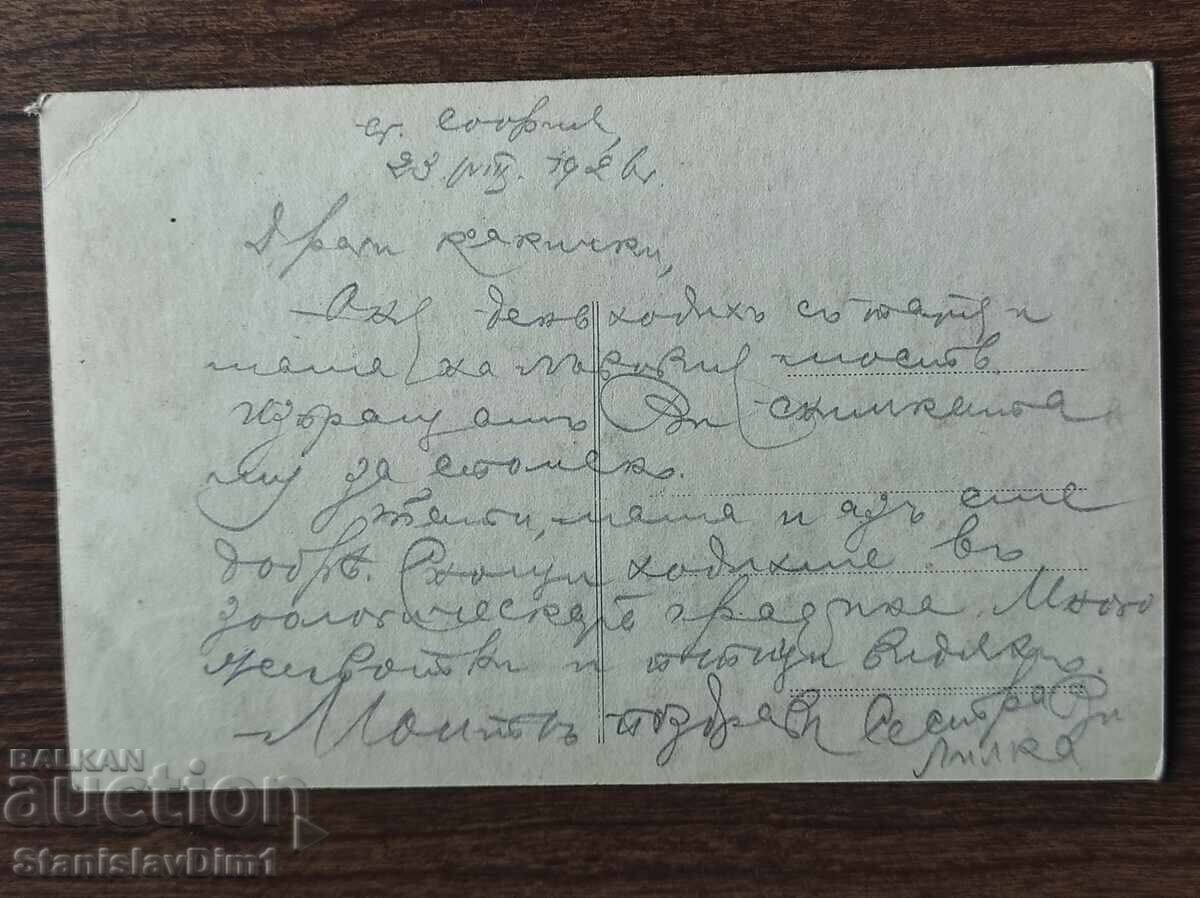 гр. София,
23 VIII. 192 г.
Драги какички,
день ходихъ съ татя и
мама на Лъвовия мостъ.
Изпращамъ Ви снимката
му за споменъ.
Тати, мама и азъ сме
добрѣ. Снощи ходихме въ
зоологическата градина. Много
животни и птици видяхъ.
Моитѣ поздрави Сестра Ви
Лилка
BALKAN
auction
StanislavDim1